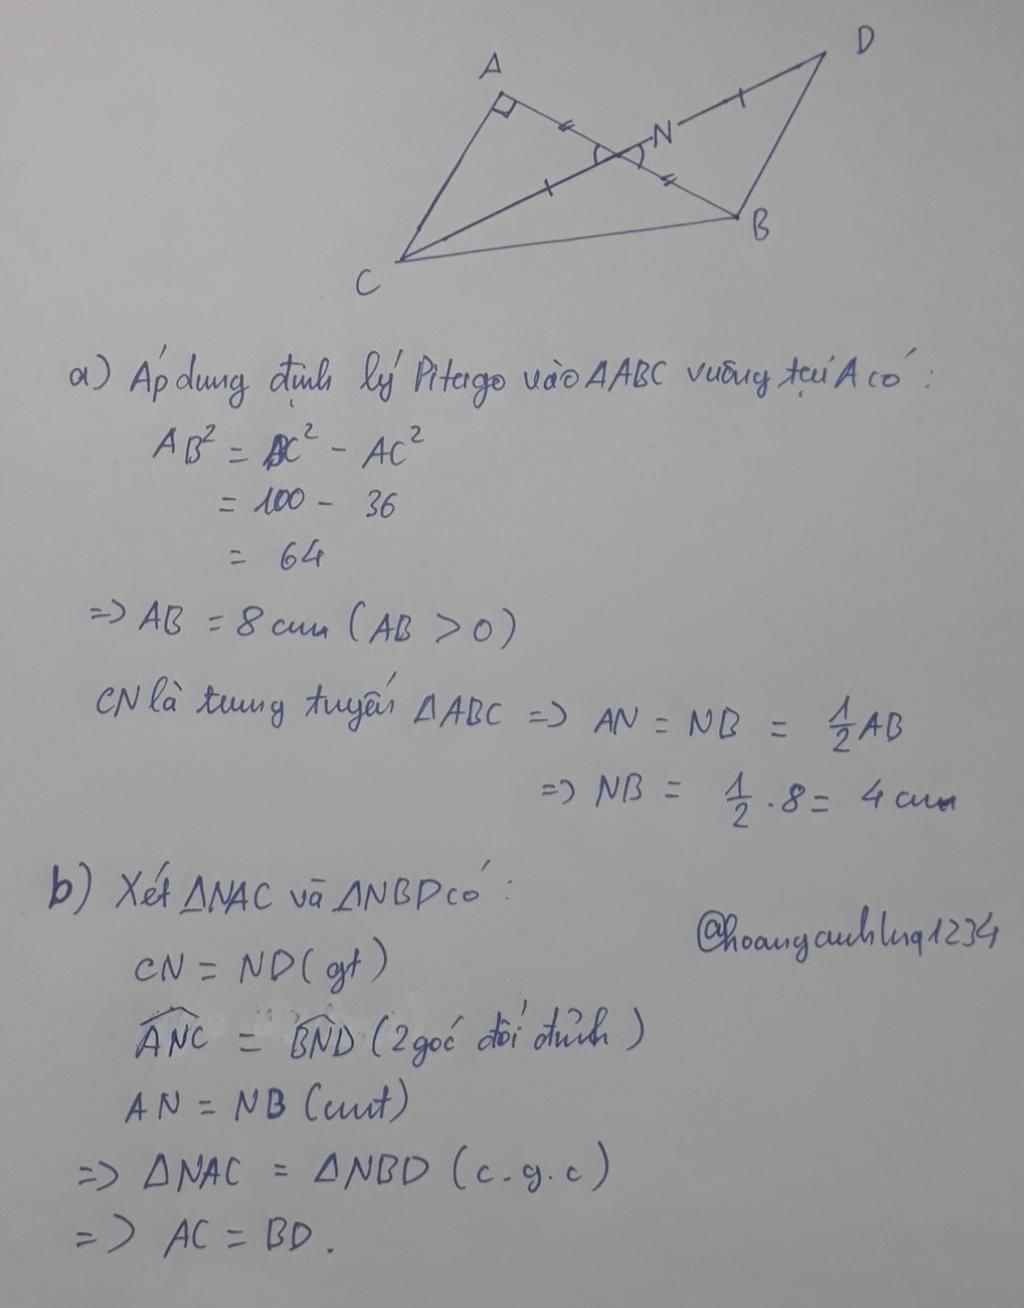 A
D
N
B
C
a) Áp dụng định lý Pitago vào ΔABC vuông tại A có:
AB² = BC² - AC²
= 100 - 36
= 64
=> AB = 8 cm (AB > 0)
CN là trung tuyến ΔABC => AN = NB = 1/2 AB
=> NB = 1/2 . 8 = 4 cm
b) Xét ΔNAC và ΔNBD có:
@hoanganhlnq1234
CN = ND (gt)
ANC = BND (2 góc đối đỉnh)
AN = NB (cmt)
=> ΔNAC = ΔNBD (c.g.c)
=> AC = BD.